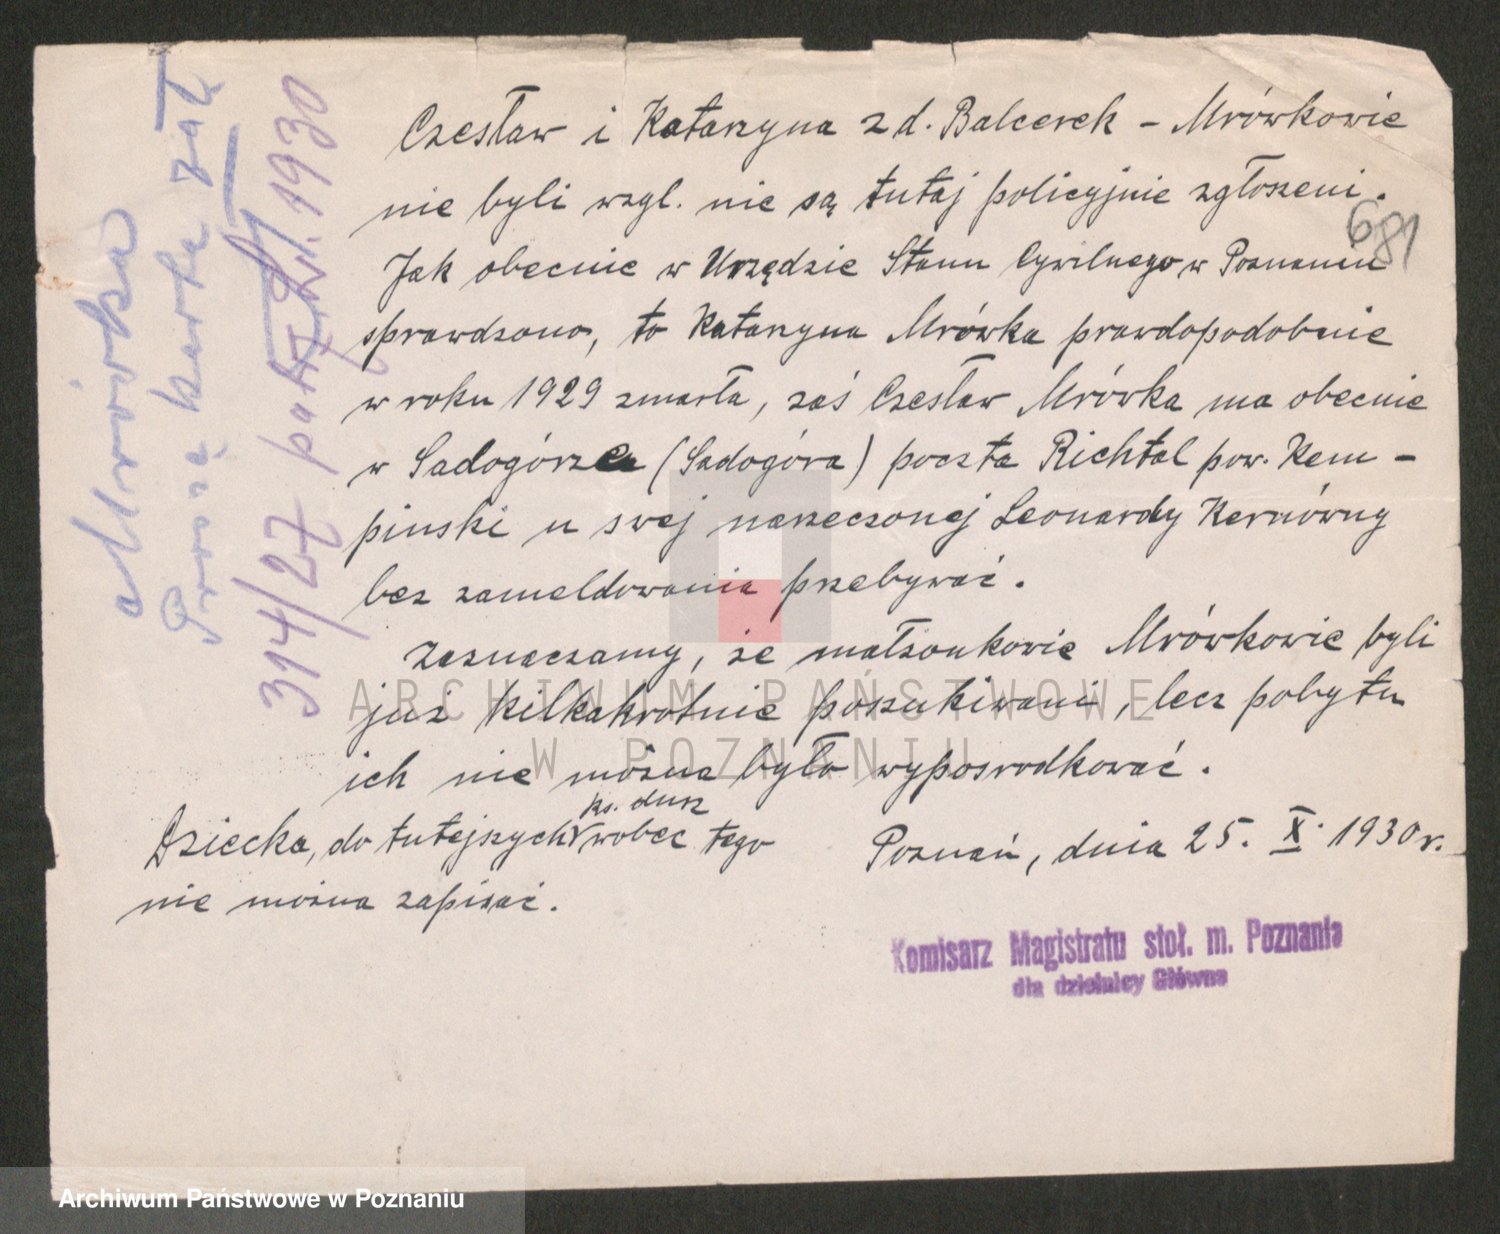 Czesław i Katarzyna z d. Balcerek – Mrówkowie
nie byli wzgl. nie są tutaj policyjnie zgłoszeni.
681
Jak obecnie w Urzędzie Stanu Cywilnego w Poznaniu
sprawdzono, to Katarzyna Mrówka prawdopodobnie
w roku 1929 zmarła, zaś Czesław Mrówka ma obecnie
w Sadogórze (Sadogóra) poczta Richtal pow. Kem-
pinski u swej narzeczonej Leonardy Kernówny
bez zameldowania przebywać.
Zaznaczamy, że małżonkowie Mrówkowie byli
już kilkakrotnie poszukiwani, lecz pobytu
ich nie można było wypośrodkować.
Dziecka, do tutejszych ks. dusz wobec tego
nie można zapisać.
Poznań, dnia 25. X. 1930 r.
Komisarz Magistratu stoł. m. Poznania
dla dzielnicy Główna
Mrówka
Proszę kartę zał
314/27 1930
ARCHIWUM PAŃSTWOWE
W POZNANIU
Archiwum Państwowe w Poznaniu